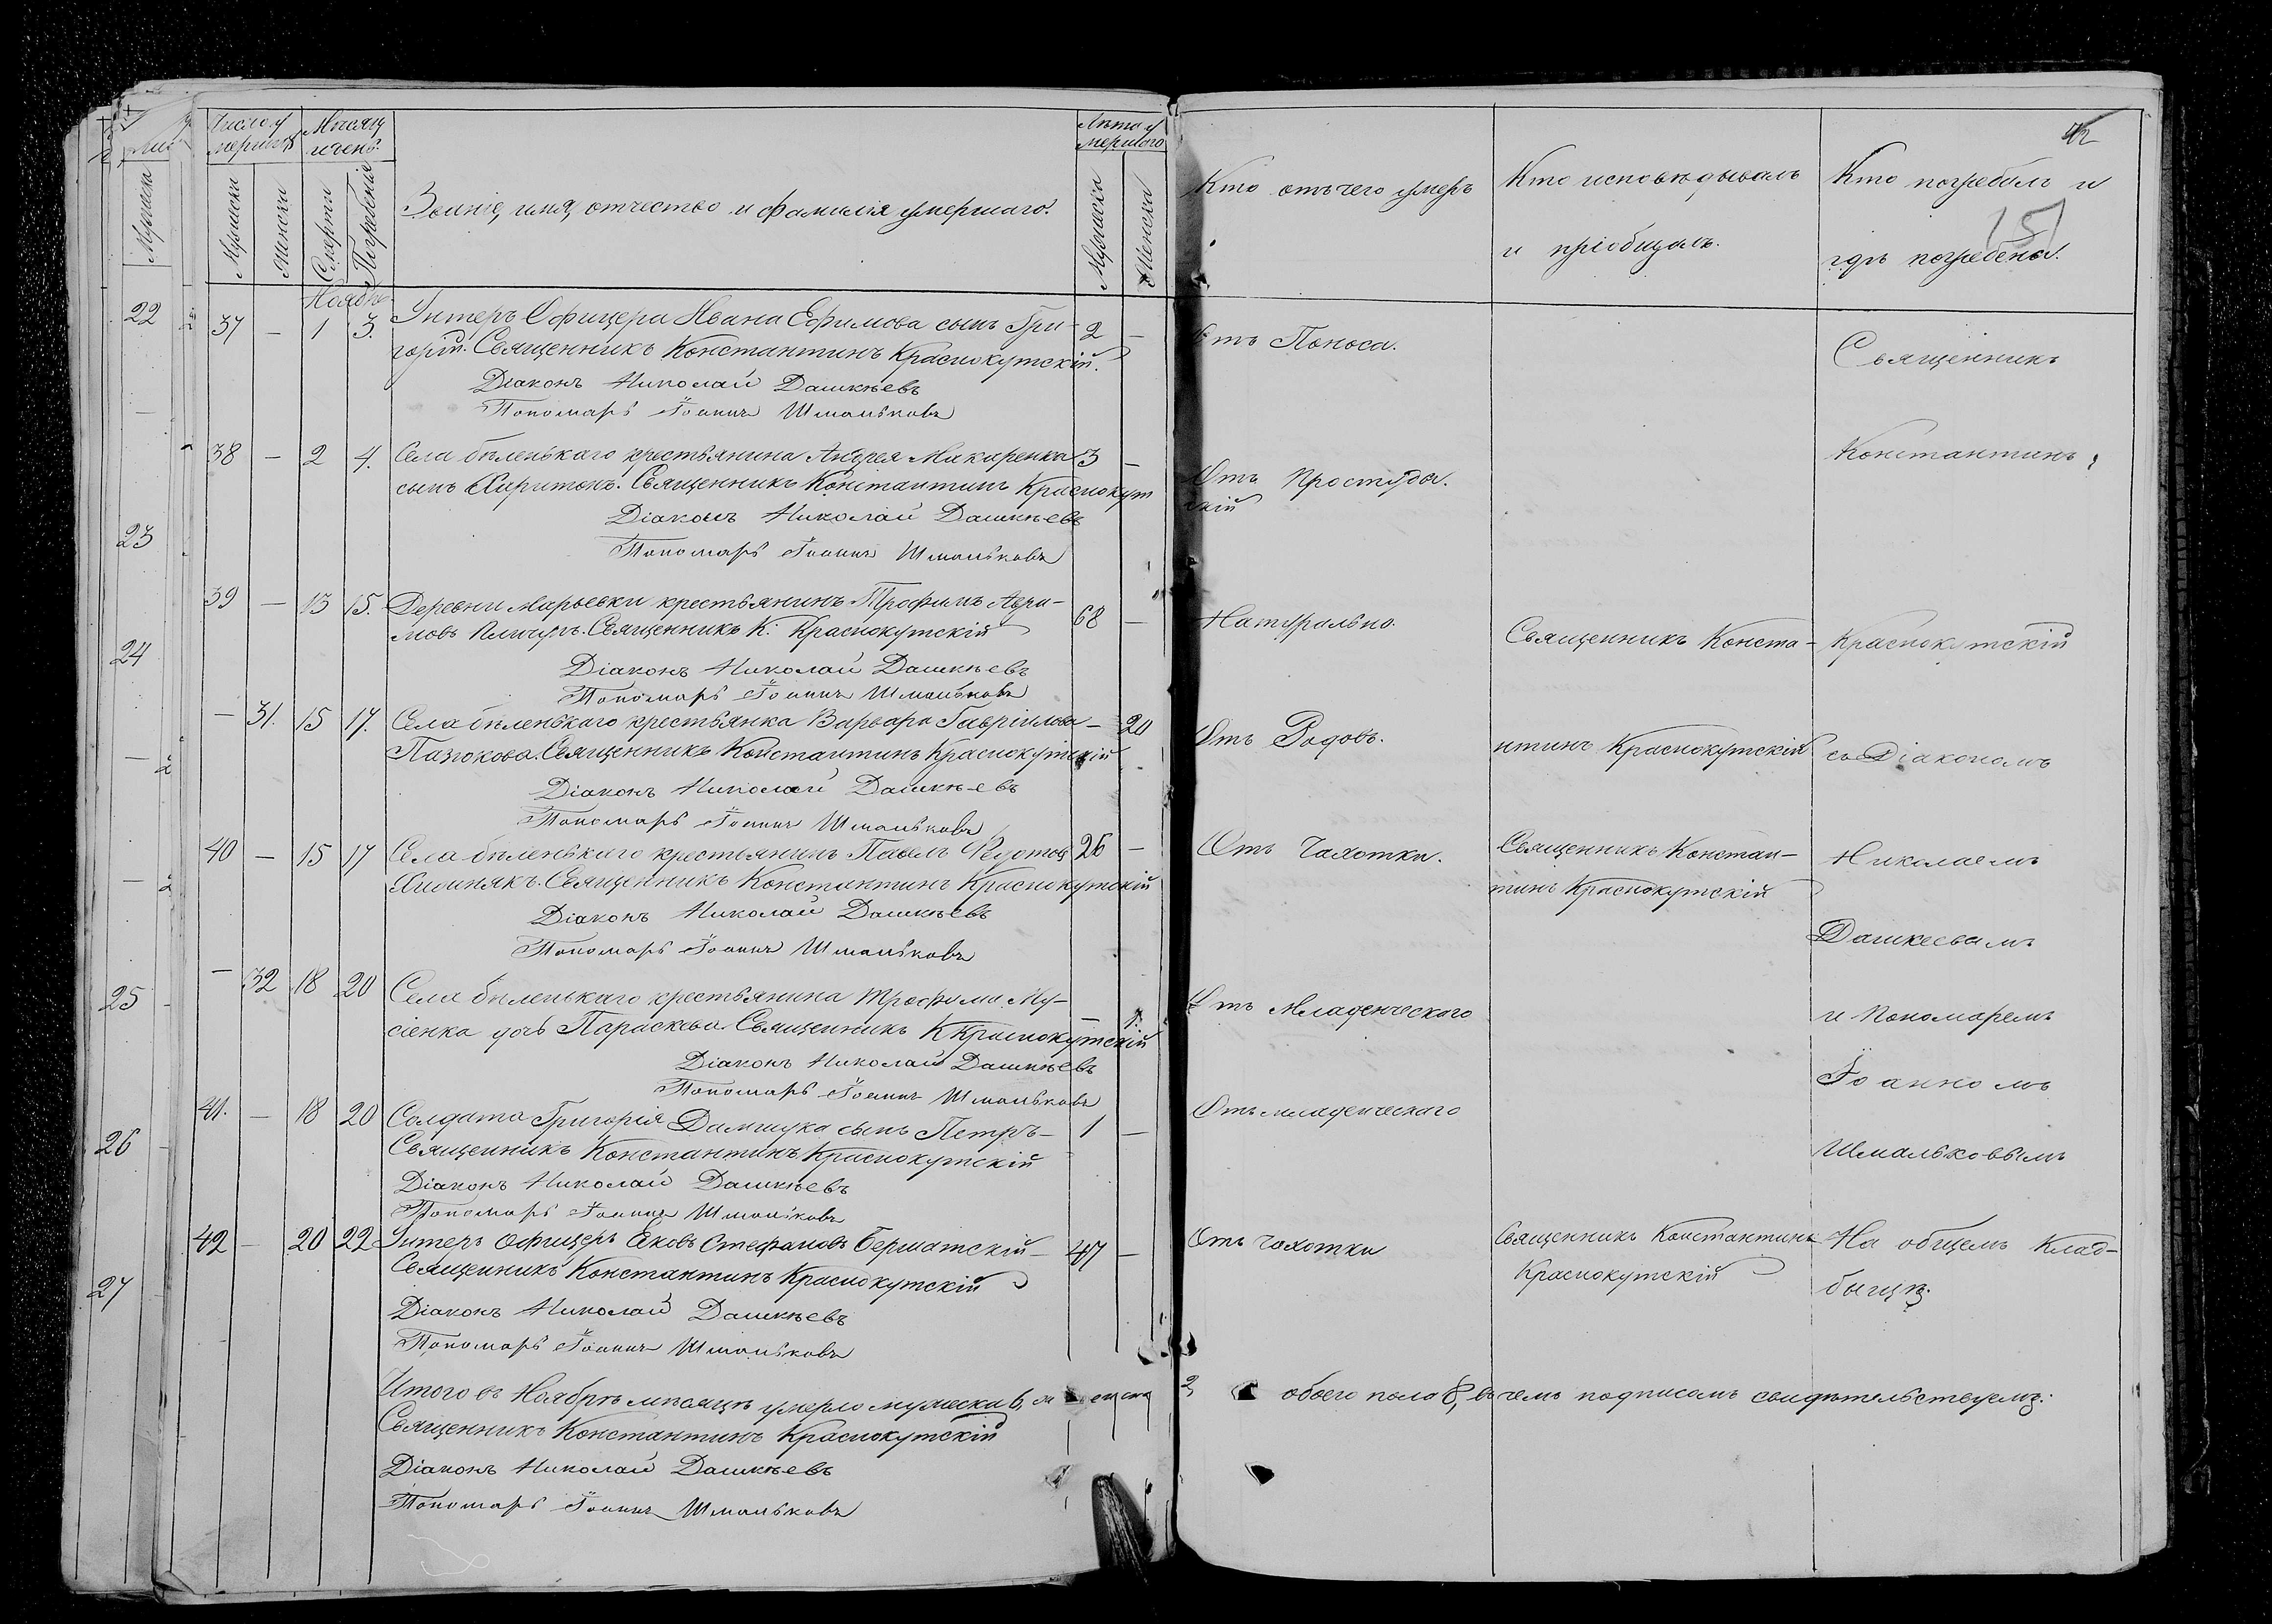 Число у
мершихъ
Мѣсяц
и день
Звание, имя, отчество и фамилія умершаго.
Лѣта у
мершаго
Мужеска
Женска
Смерти
Погребенія
Мужеска
Женска
Мужеска
Кто отъ чего умеръ
Кто исповѣдывалъ
и пріобщалъ.
Кто погребалъ и
гдѣ погребены.
42
151
Ноябрь
22
37 — 1 3. Унтеръ Офицера Ивана Ефимова сынъ Гри- 2 —
горій. Священникъ Константинъ Краснокутскій.
Діаконъ Николай Дашкѣевъ
Пономарь Іоаннъ Шмальковъ
Отъ Поноса.
Священникъ
38 — 2 4. Села бѣленькаго крестьянина Андрея Макаренка 3 —
сынъ Харитонъ. Священникъ Константинъ Краснокут
скій
Діаконъ Николай Дашкѣевъ
Пономарь Іоаннъ Шмальковъ
Отъ Простуды.
Константинъ
23
39 — 13 15. Деревни Марьевки крестьянинъ Трофимъ Авра- 68 —
мовъ Священникъ К. Краснокутскій
Діаконъ Николай Дашкѣевъ
Пономарь Іоаннъ Шмальковъ
Натурально.
Священникъ Конста-
Краснокутскій
24
— 31. 15 17. Села бѣленькаго крестьянка Варвара Гавріилова — 20
Пазюкова. Священникъ Константинъ Краснокутскій
Діаконъ Николай Дашкѣевъ
Пономарь Іоаннъ Шмальковъ
Отъ Родовъ.
нтинъ Краснокутскій
съ Діакономъ
40 — 15 17 Села бѣленькаго крестьянинъ Павелъ Федотовъ 26 —
Химинякъ. Священникъ Константинъ Краснокутскій
Діаконъ Николай Дашкѣевъ
Пономарь Іоаннъ Шмальковъ
Отъ Чахотки.
Священникъ Констан-
тинъ Краснокутскій
Николаемъ
Дашкеевымъ
25
— 32 18 20 Села бѣленькаго крестьянина Трофима Му-
сіенка дочь Параскева. Священникъ К Краснокутскій
Діаконъ Николай Дашкѣевъ
Пономарь Іоаннъ Шмальковъ
Отъ Младенческаго
и Пономаремъ
Іоанномъ
41. — 18 20 Солдата Григорія сынъ Петръ — 1 —
Священникъ Константинъ Краснокутскій
Діаконъ Николай Дашкѣевъ
Пономарь Іоаннъ Шмальковъ
Отъ младенческаго
Шмальковымъ
26
42 — 20 22 Унтеръ Офицеръ Яковъ Стефановъ Бершатскій — 47 —
Священникъ Константинъ Краснокутскій
Діаконъ Николай Дашкѣевъ
Пономарь Іоаннъ Шмальковъ
Отъ чахотки
Священникъ Константинъ
Краснокутскій
На общемъ Клад-
бищѣ.
27
Итого въ Ноябрѣ мѣсяцѣ умерло мужеска 6, женска 2, обоего пола 8, въ чемъ подписомъ свидѣтельствуемъ:
Священникъ Константинъ Краснокутскій
Діаконъ Николай Дашкѣевъ
Пономарь Іоаннъ Шмальковъ